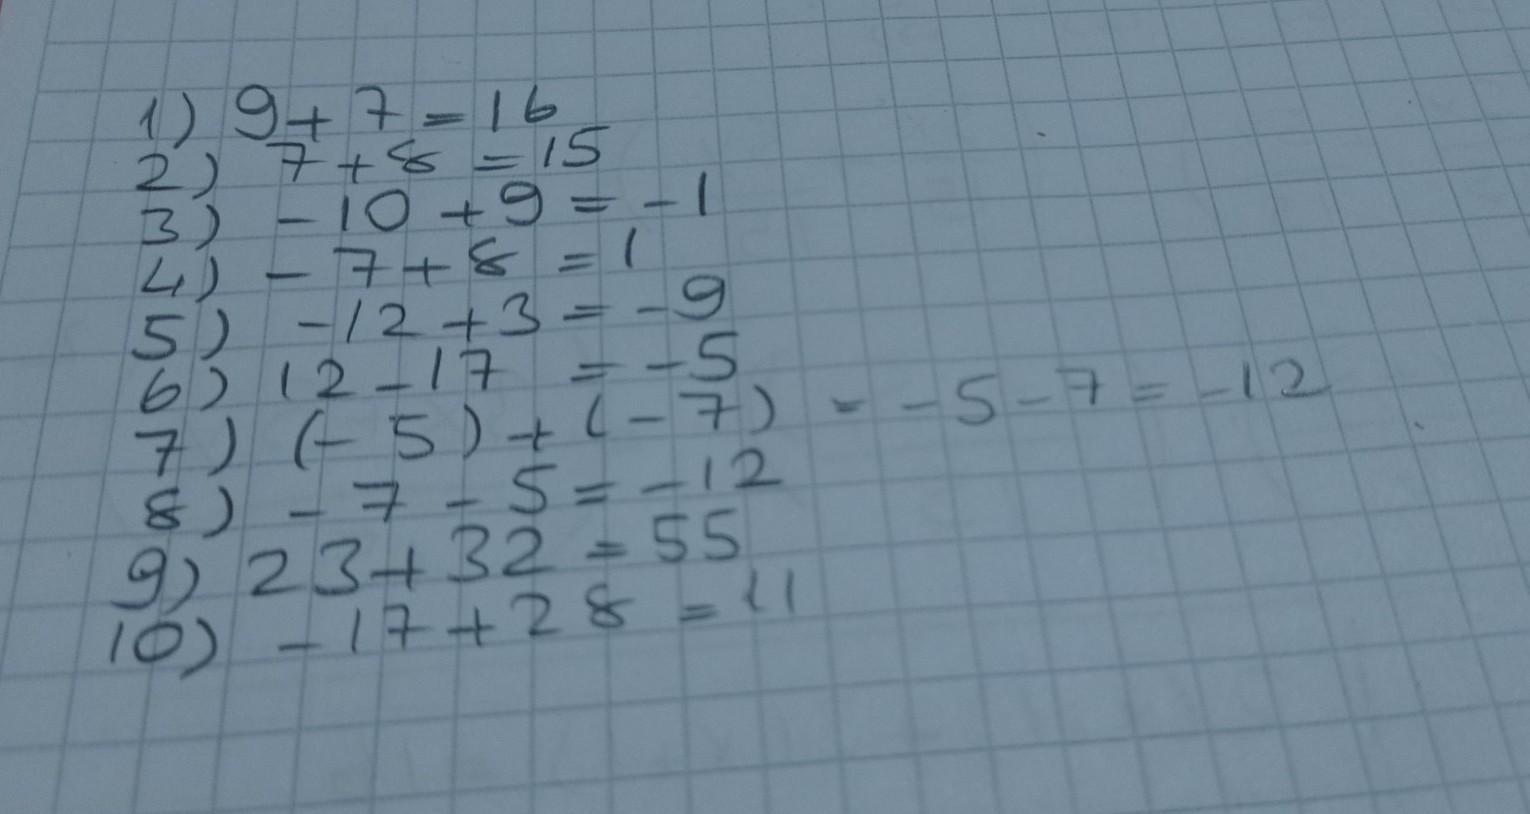 1) 9+7=16
2) 7+8=15
3) -10+9=-1
4) -7+8=1
5) -12+3=-9
6) 12-17=-5
7) (-5)+(-7) = -5-7=-12
8) -7-5=-12
9) 23+32=55
10) -17+28=11